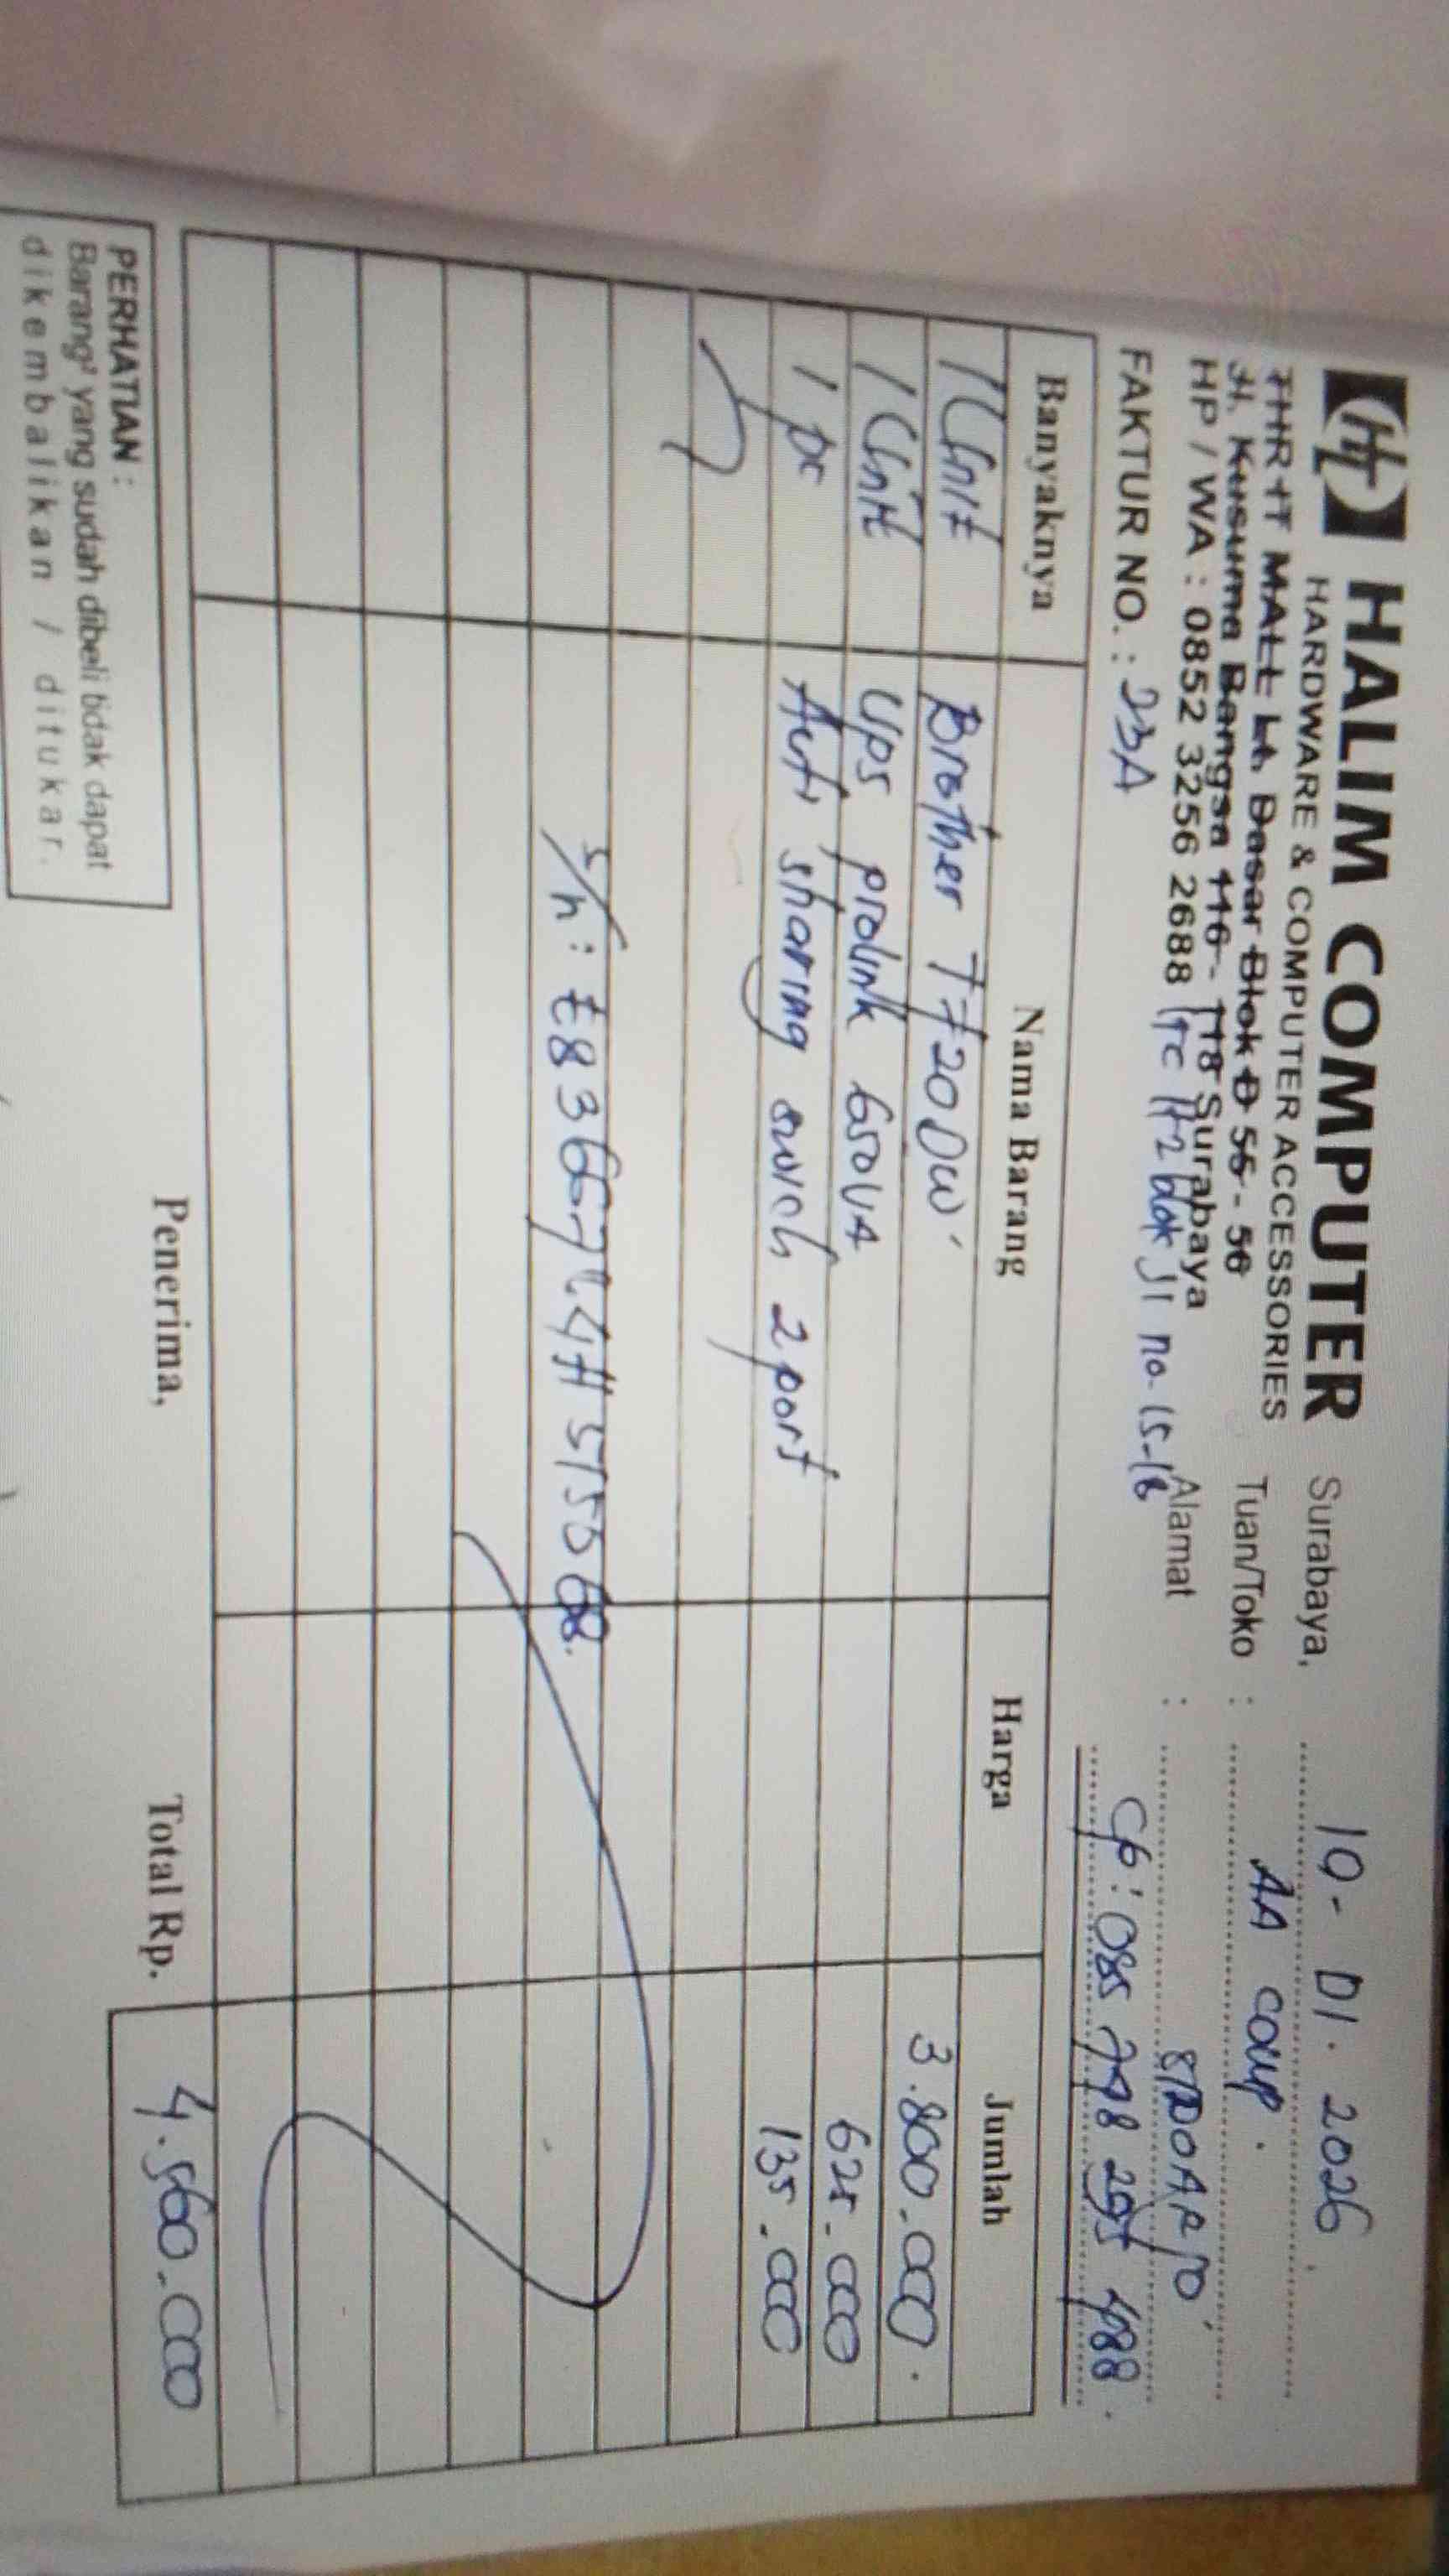 HT HALIM COMPUTER
HARDWARE & COMPUTER ACCESSORIES
THR IT MALL Lt. Dasar Blok D 55 - 56
Jl. Kusuma Bangsa 116 - 118 Surabaya
HP / WA : 0852 3256 2688 ITC lt 2 blok J1 no. 15-16
FAKTUR NO. : 23A
Surabaya, 10 - 01 . 2026
Tuan/Toko : AA comp.
Alamat : SIDOARJO
cp : 085 748 295 488
Banyaknya Nama Barang Harga Jumlah
1 Unit Brother T720DW 3.800.000
1 Unit Ups prolink 650VA 625.000
1 pc sharing 2 port 135.000
s/n :
PERHATIAN :
Barang² yang sudah dibeli tidak dapat
dikembalikan / ditukar.
Penerima,
Total Rp. 4.560.000